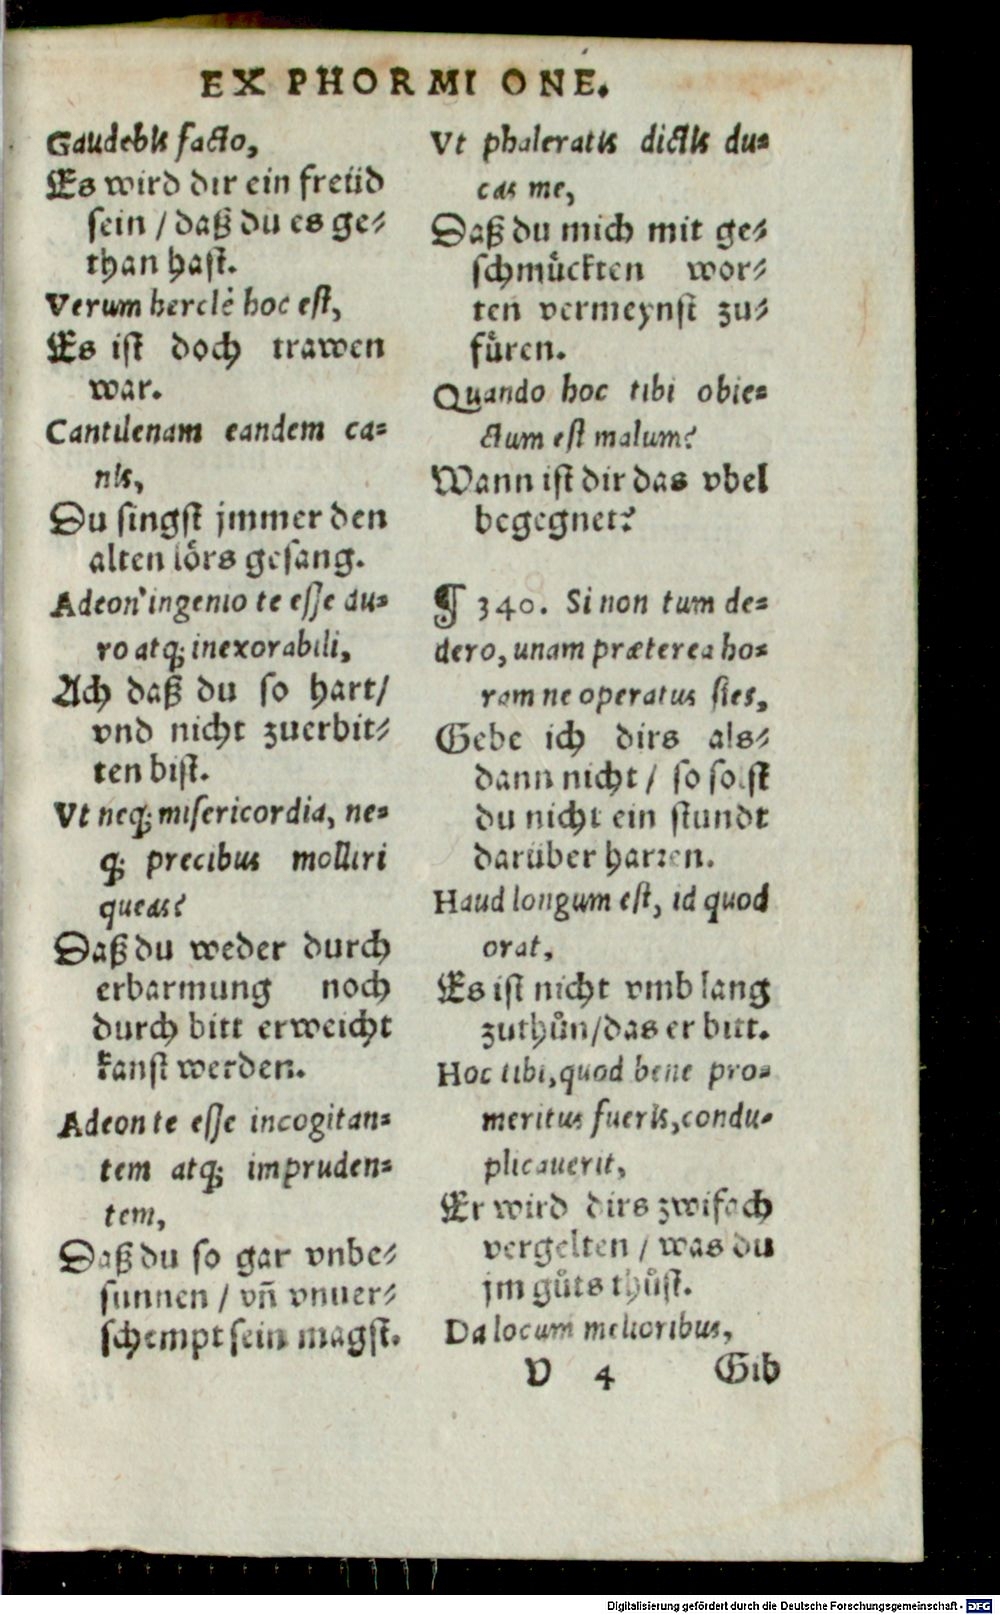 EX PHORMIONE.
Gaudebis facto,
Es wird dir ein freüd
sein / daß du es ge⸗
than hast.
Verum herclè hoc est,
Es ist doch trawen
war.
Cantilenam eandem ca⸗
nis,
Du singst jmmer den
alten lörs gesang.
Adeon' ingenio te esse du⸗
ro atq; inexorabili,
Ach daß du so hart/
vnd nicht zuerbit⸗
ten bist.
Vt neq; misericordia, ne⸗
q; precibus molliri
queas?
Daß du weder durch
erbarmung noch
durch bitt erweicht
kanst werden.
Adeon te esse incogitan⸗
tem atq; impruden⸗
tem,
Daß du so gar vnbe⸗
sunnen / vñ vnuer⸗
schempt sein magst.
Vt phaleratis dictis du⸗
cas me,
Daß du mich mit ge⸗
schmuͤckten wor⸗
ten vermeynst zu⸗
fuͤren.
Quando hoc tibi obie⸗
ctum est malum?
Wann ist dir das vbel
begegnet?
¶ 340. Si non tum de⸗
dero, unam præterea ho⸗
ram ne operatus sies,
Gebe ich dirs als⸗
dann nicht / so solst
du nicht ein stundt
darüber harren.
Haud longum est, id quod
orat,
Es ist nicht vmb lang
zuthůn/das er bitt.
Hoc tibi, quod bene pro⸗
meritus fueris, condu⸗
plicauerit,
Er wird dirs zwifach
vergelten / was du
jm gůts thůst.
Da locum melioribus,
V 4 Gib
Digitalisierung gefördert durch die Deutsche Forschungsgemeinschaft - DFG